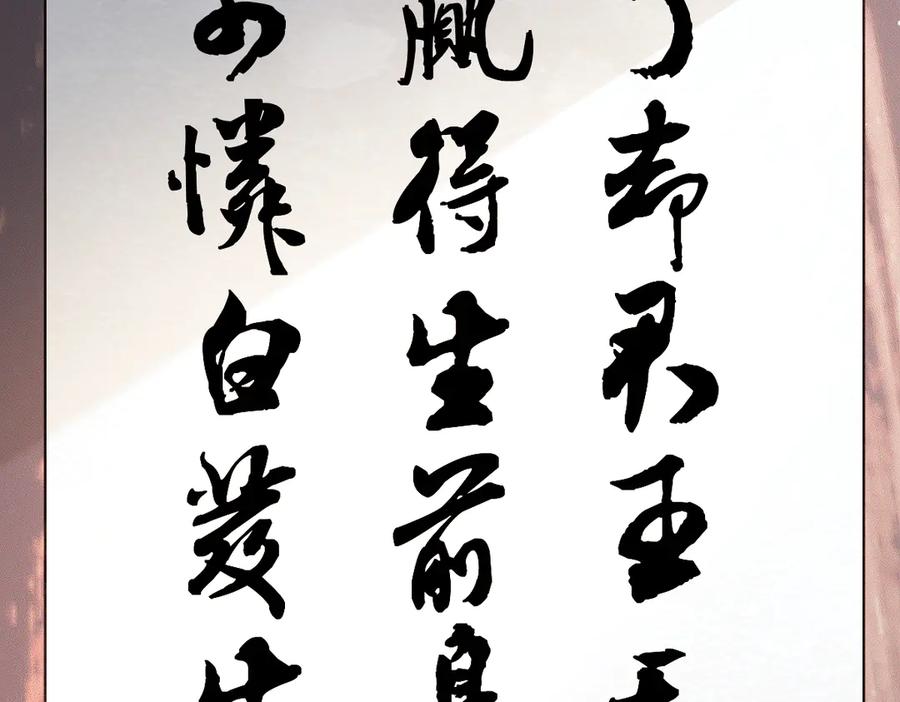 了却君王天
赢得生前身
可憐白發生